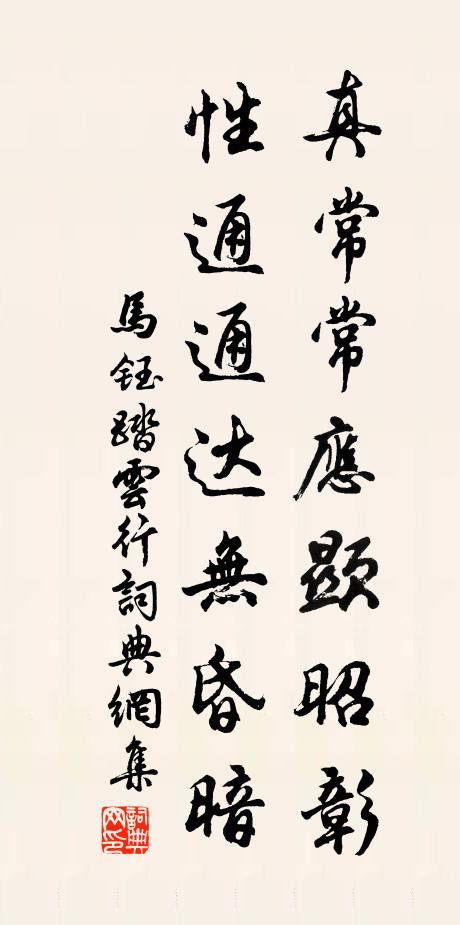 真常常應顯昭彰
性通通达無昏暗
馬鈺踏雲行詞典網集
詞典网印